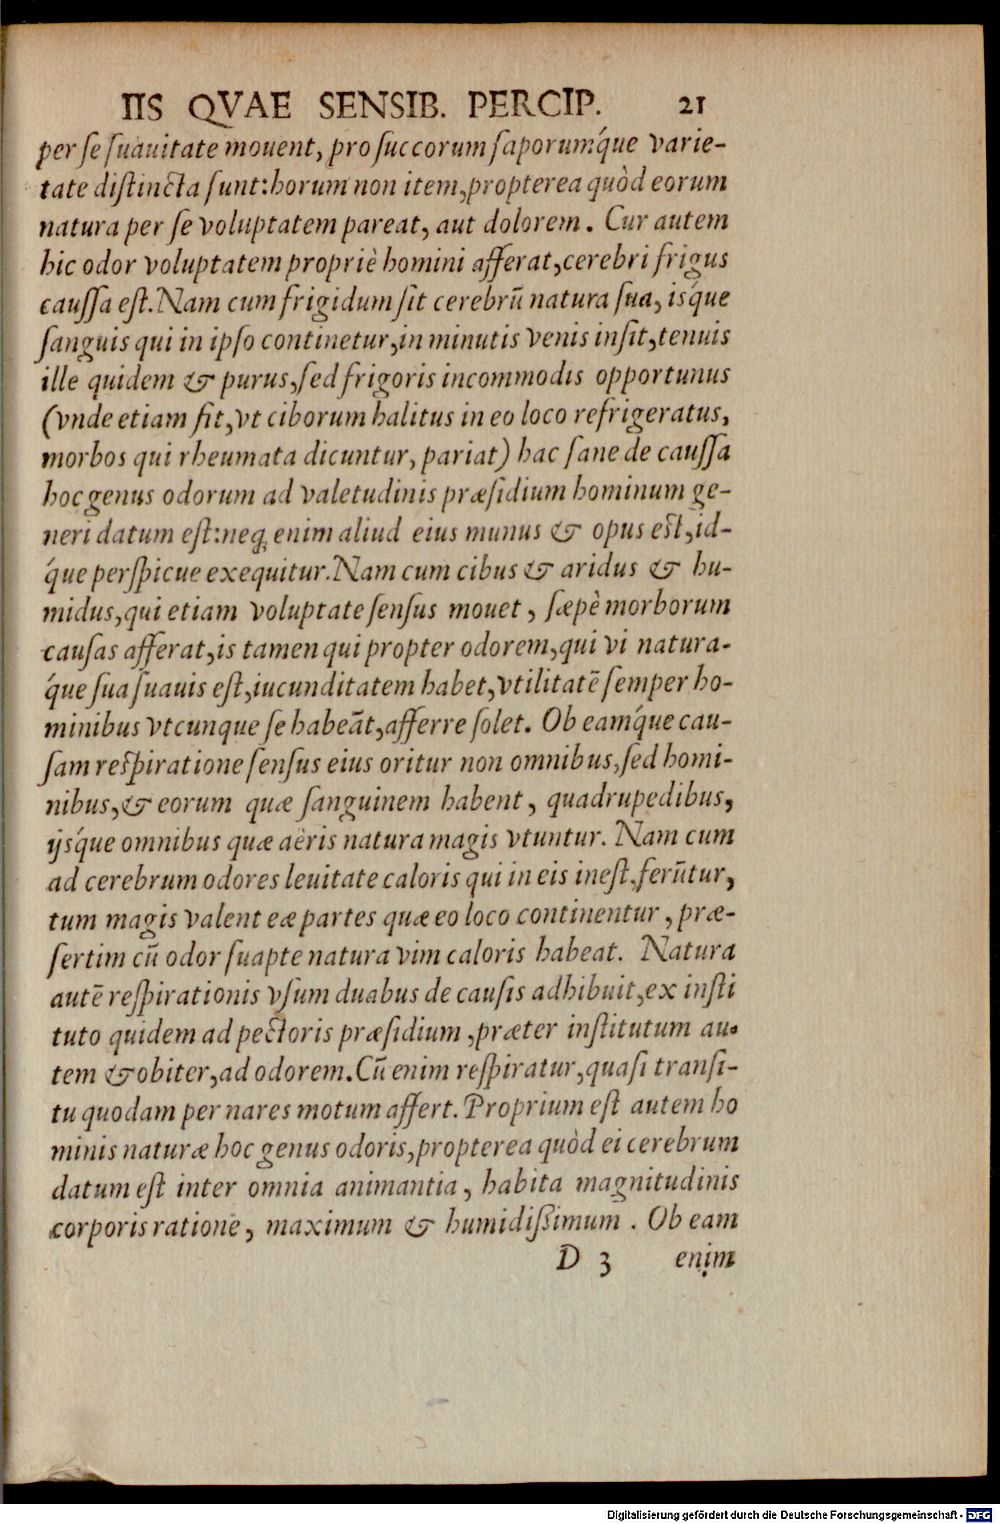 IIS QVAE SENSIB. PERCIP. 21
per se suauitate mouent, pro succorum saporumq́ue varie-
tate distincta sunt: horum non item, propterea quòd eorum
natura per se voluptatem pareat, aut dolorem. Cur autem
hic odor voluptatem propriè homini afferat, cerebri frigus
caussa est. Nam cum frigidum sit cerebrũ natura sua, isq́ue
sanguis qui in ipso continetur, in minutis venis insit, tenuis
ille quidem & purus, sed frigoris incommodis opportunus
(vnde etiam fit, vt ciborum halitus in eo loco refrigeratus,
morbos qui rheumata dicuntur, pariat) hac sane de caussa
hoc genus odorum ad valetudinis præsidium hominum ge-
neri datum est: neq; enim aliud eius munus & opus est, id-
q́ue perspicue exequitur. Nam cum cibus & aridus & hu-
midus, qui etiam voluptate sensus mouet, sæpè morborum
causas afferat, is tamen qui propter odorem, qui vi natura-
q́ue sua suauis est, iucunditatem habet, vtilitatẽ semper ho-
minibus vtcunque se habeãt, afferre solet. Ob eamq́ue cau-
sam respiratione sensus eius oritur non omnibus, sed homi-
nibus, & eorum quæ sanguinem habent, quadrupedibus,
ijsq́ue omnibus quæ aëris natura magis vtuntur. Nam cum
ad cerebrum odores leuitate caloris qui in eis inest, ferũtur,
tum magis valent eæ partes quæ eo loco continentur, præ-
sertim cũ odor suapte natura vim caloris habeat. Natura
autẽ respirationis vsum duabus de causis adhibuit, ex insti
tuto quidem ad pectoris præsidium, præter institutum au-
tem & obiter, ad odorem. Cũ enim respiratur, quasi transi-
tu quodam per nares motum affert. Proprium est autem ho
minis naturæ hoc genus odoris, propterea quòd ei cerebrum
datum est inter omnia animantia, habita magnitudinis
corporis ratione, maximum & humidissimum. Ob eam
D 3 enim
Digitalisierung gefördert durch die Deutsche Forschungsgemeinschaft - DFG